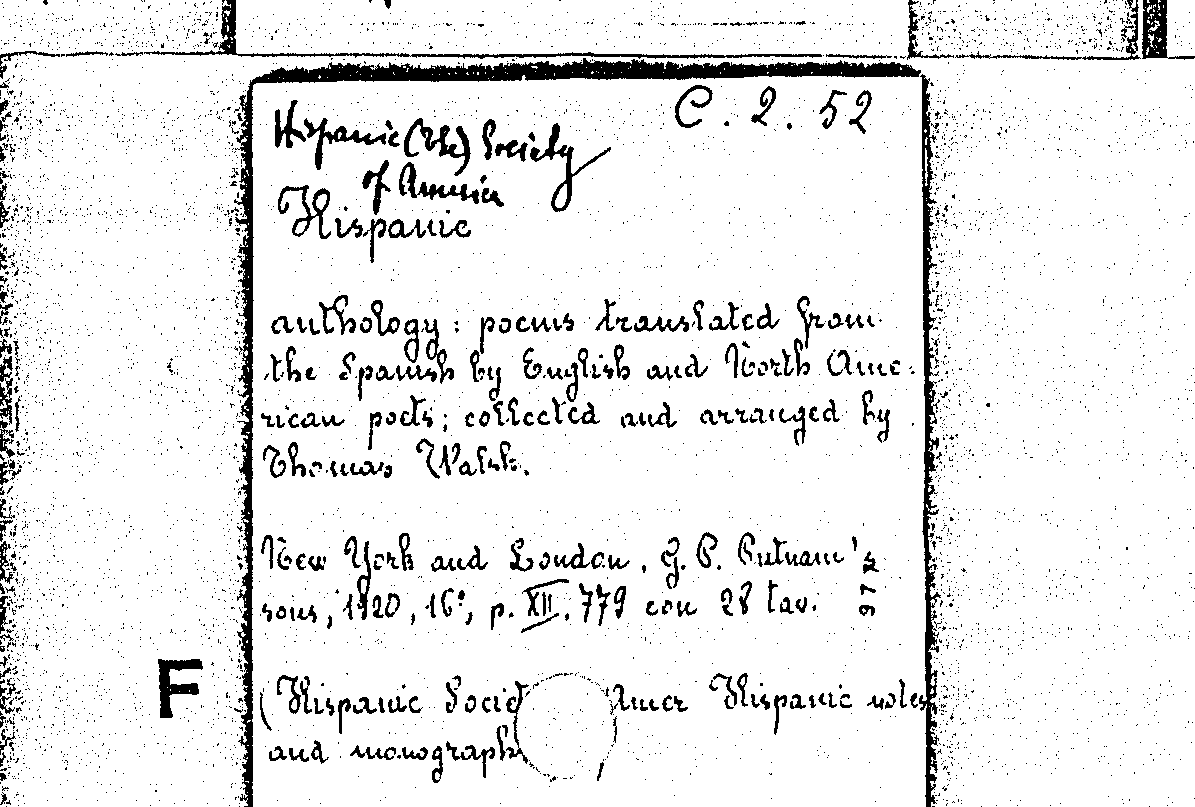 C. 2. 52
Hispanic (The) Society
of America
Hispanic
anthology: poems translated from
the Spanish by English and North Ame-
rican poets; collected and arranged by
Thomas Walsh.
New York and London, G. P. Putnam's
sons, 1920, 16°, p. XII. 779 con 28 tav.
F
(Hispanic Socie Amer Hispanic notes
and monograph